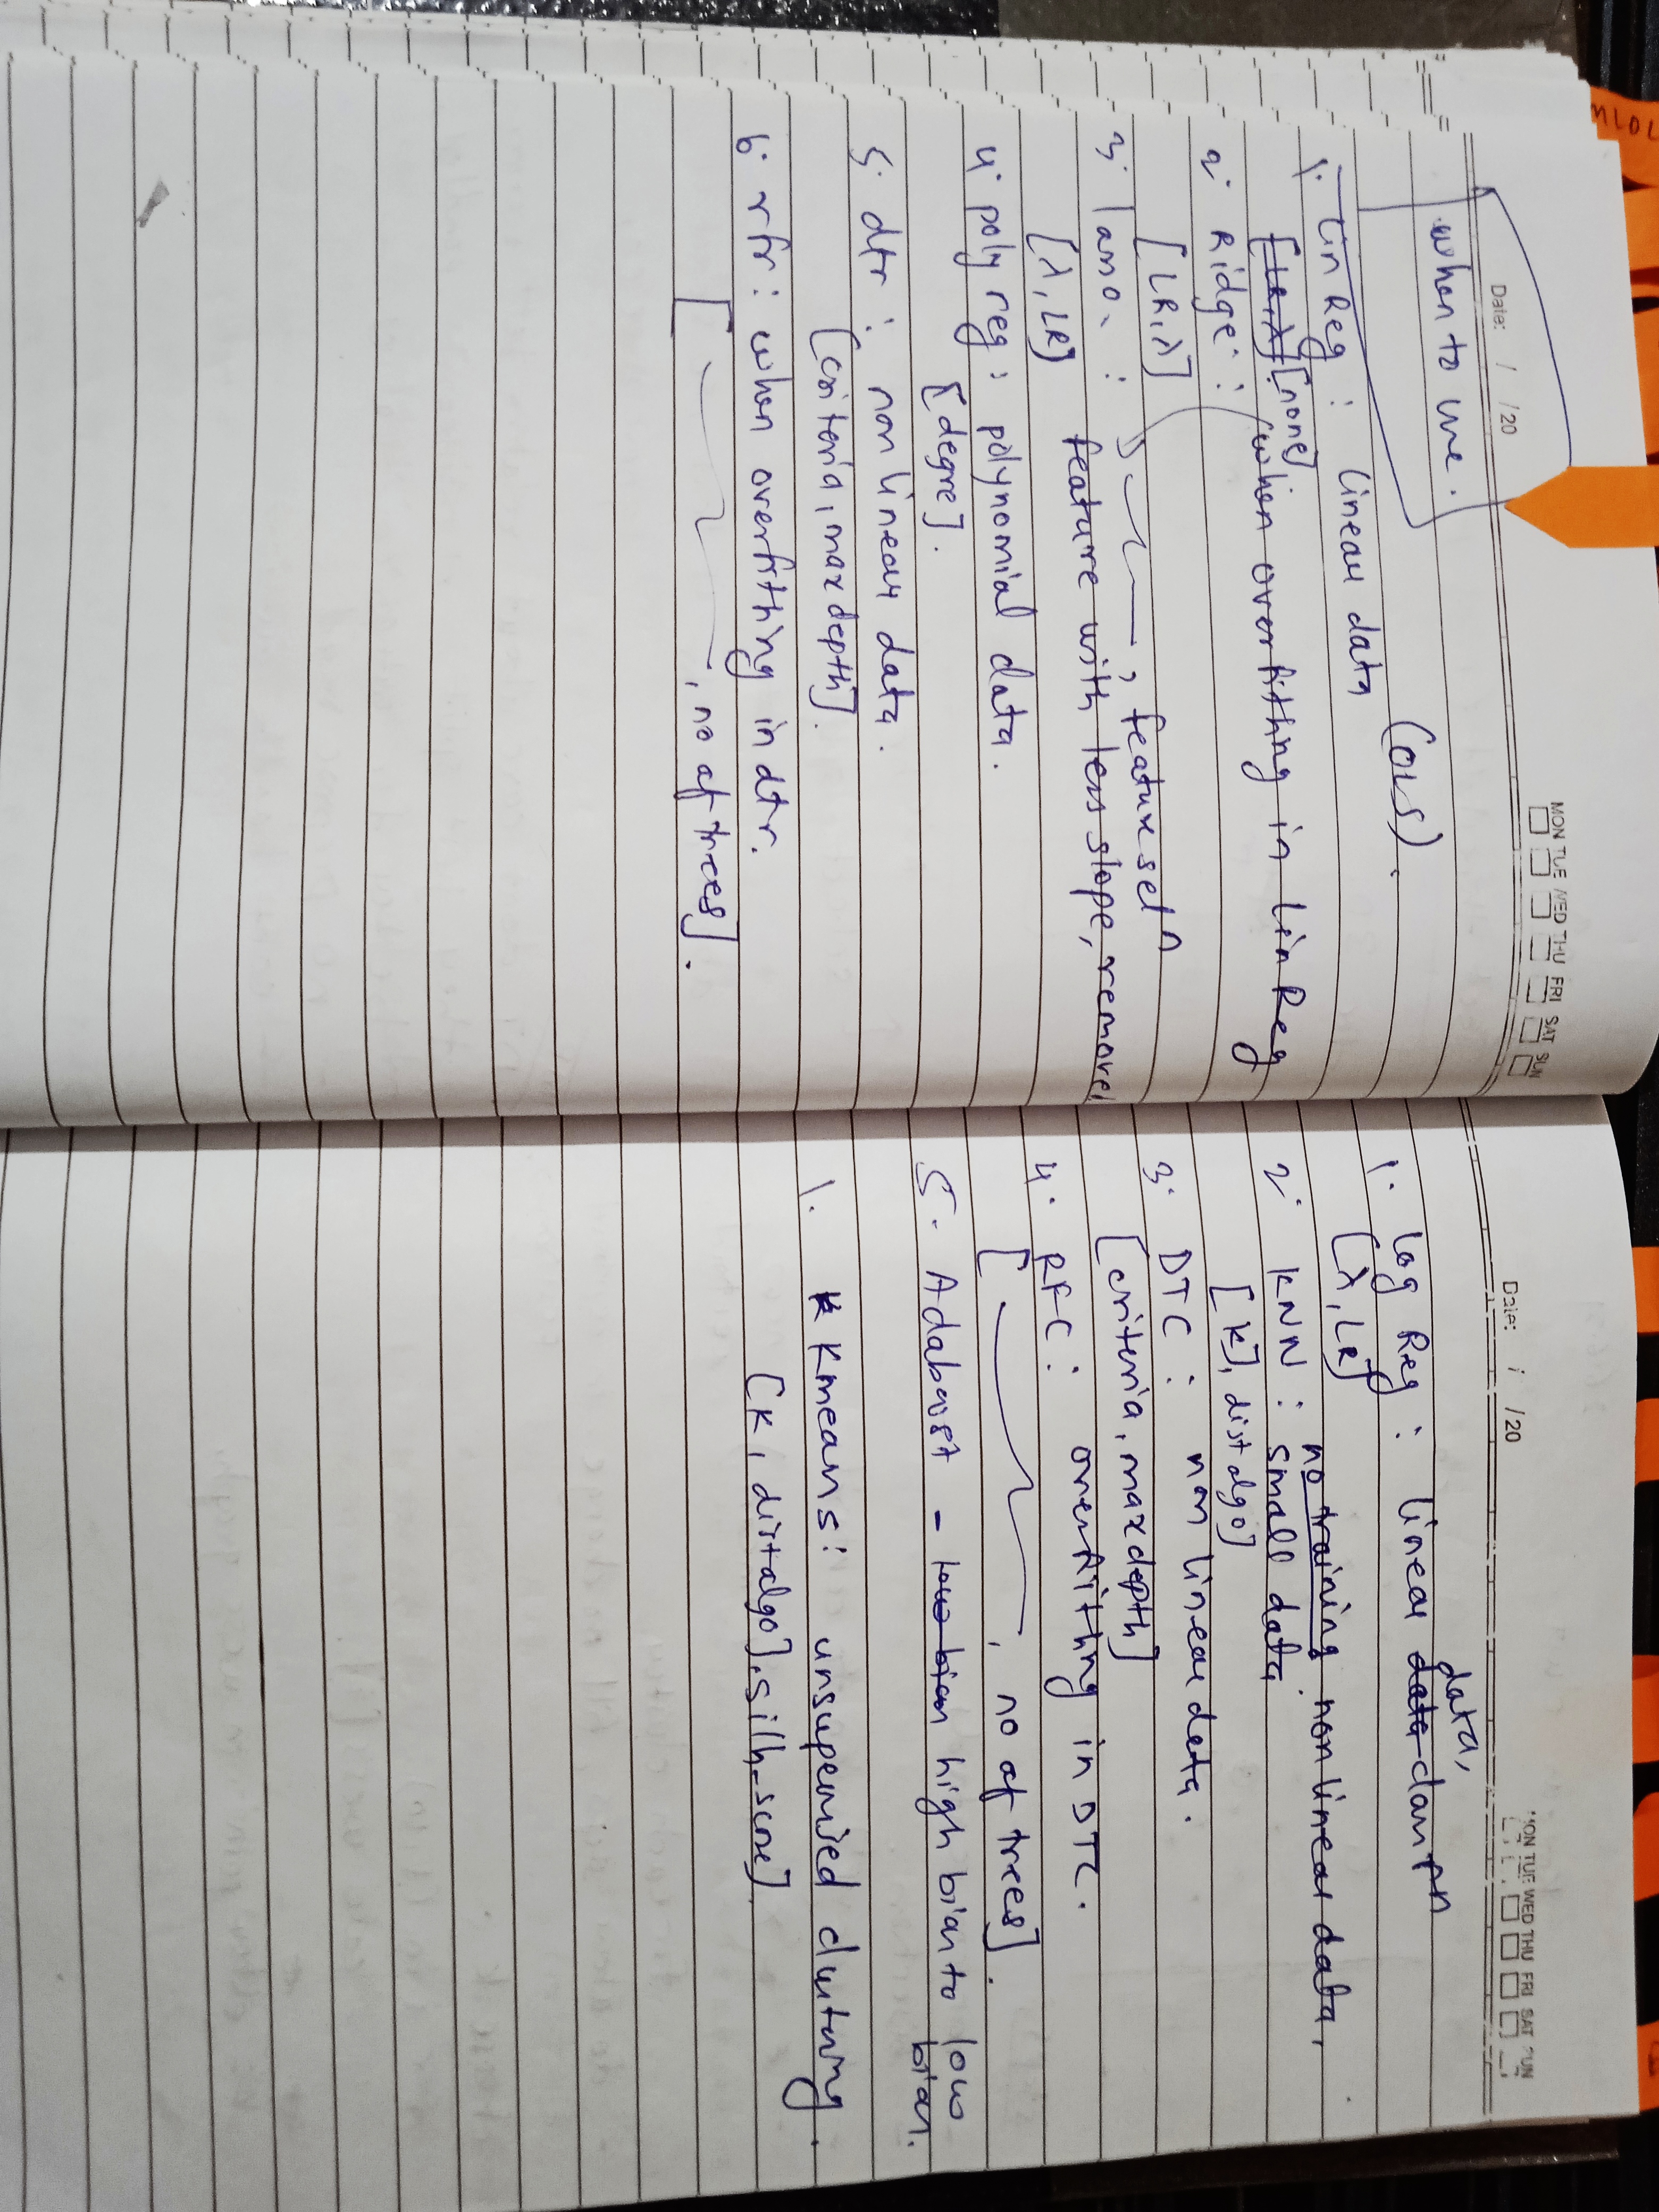 Date: / /20
MON TUE WED THU FRI SAT SUN
when to use.
(OLS).
1. Lin Reg : linear data
[LR, λ] [none]
2. Ridge : when overfitting in Lin Reg
[LR, λ]
3. lasso : , feature sel^n
feature with less slope, remove
[λ, LR]
4. poly reg : polynomial data.
[degree].
5. dtr : non linear data.
[criteria, max depth].
6. rfr : when overfitting in dtr.
[ , no of trees].
Date: / /20
MON TUE WED THU FRI SAT SUN
data,
1. Log Reg : linear data classf^n
[λ, LR]
no training non linear data,
2. KNN : small data.
[K], dist algo]
3. DTC : non linear data.
[criteria, max depth]
4. RFC : overfitting in DTC.
[ , no of trees].
5. Adaboost - low bias high bias to low
bias.
1. K Kmeans : unsupervised clustering.
[K, dist algo], silh_score]